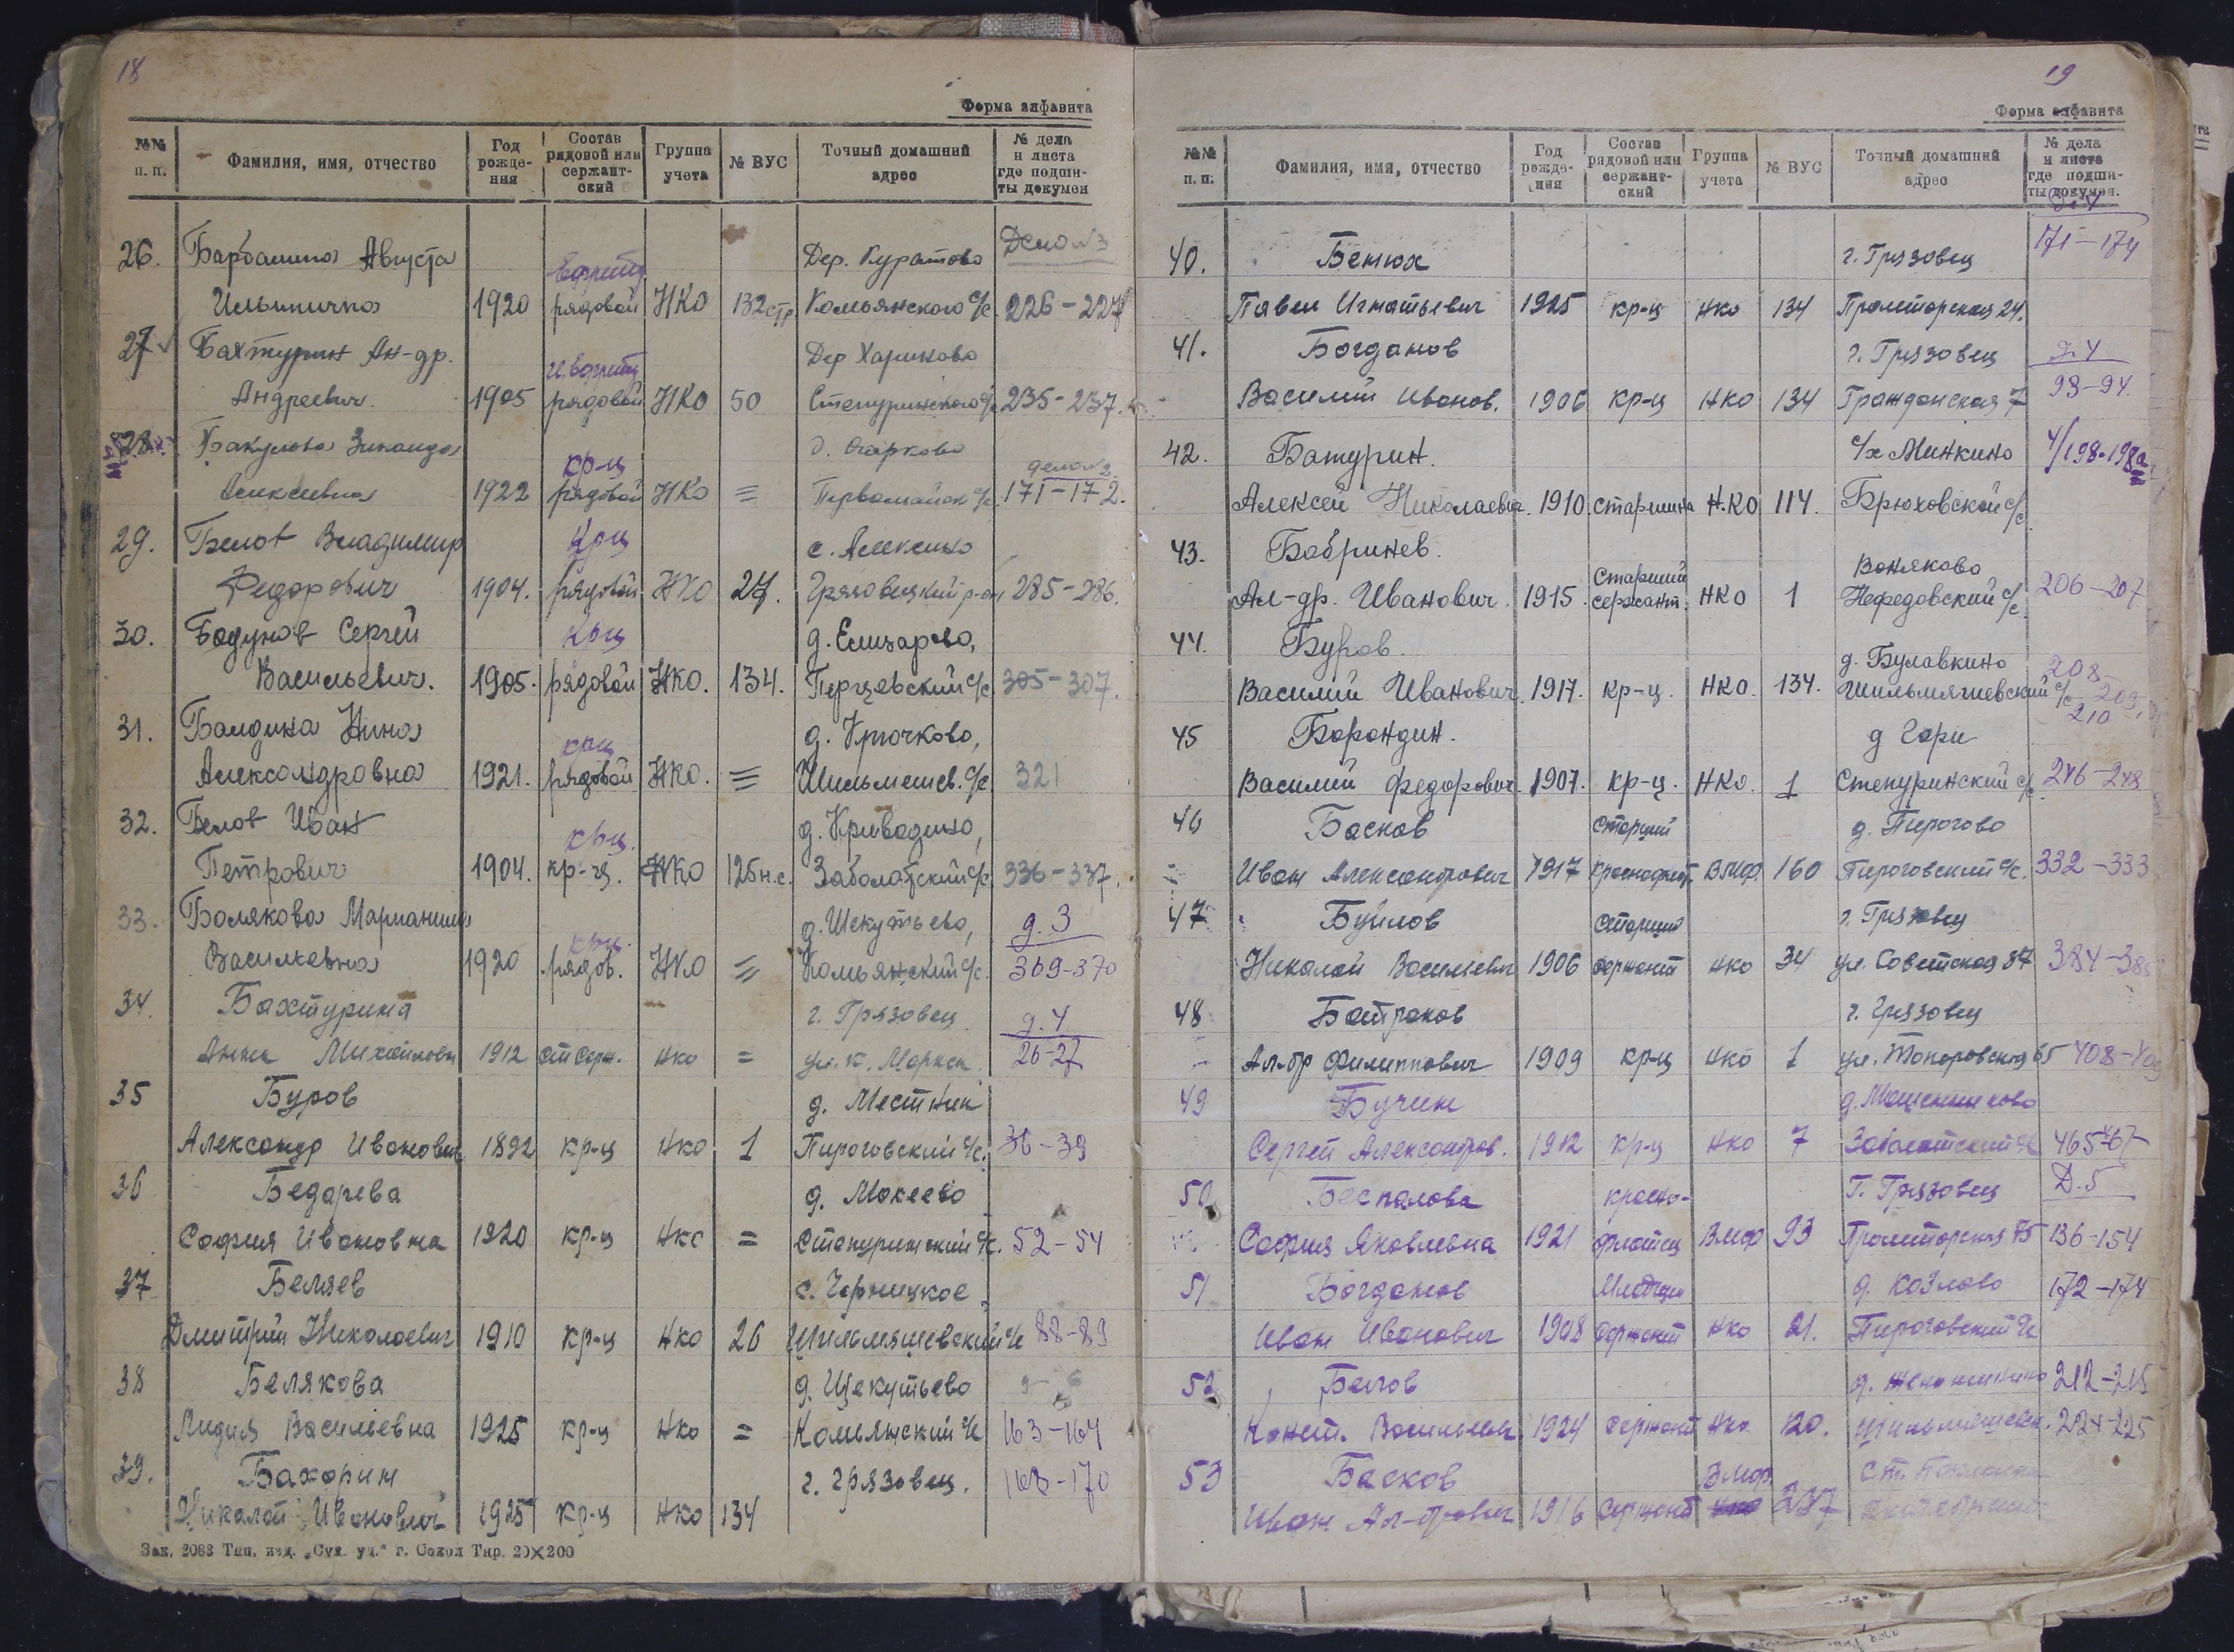 18
Форма алфавита
№№ п. п. Фамилия, имя, отчество Год рожде- ния Состав рядовой или сержант- ский Группа учета № ВУС Точный домашний адрес № дела и листа где подши- ты докумен
26. Августа Дер. Куратово Дело №3
Ильинична 1920 рядовой НКО 132 стр Комьянского с/с. 226-227
27 Бахтурин Ан-др. Дер Хариково
Андреевич. 1905 рядовой НКО 50 Степуринского с/с 235-237.
28. Бакулова Зинаида кр-ц д. Огарково дело №2
Алексеевна 1922 рядовой НКО = Первомайск с/с 171-172.
29. Белов Владимир Крц с. Алексино
Федорович 1904. рядовой НКО 27. Грязовецкий р-он 285-286.
30. Бодунов Сергей Крц д. Елизарово,
Васильевич. 1905. рядовой НКО. 134. Перцевский с/с 305-307.
31. Балдина Нина крц д. Крючково,
Александровна 1921. рядовой НКО. = Шильмяшев. с/с 321
32. Белов Иван крц. д. Криводино,
Петрович 1904. кр-ц. НКО 125 н.с. Заболотский с/с 336-337.
33. Болякова крц. д. Шекутьево, д. 3
Васильевна 1920 рядов. НКО = Комьянский с/с. 369-370
34. Бахтурина г. Грязовец д. 4
Анна Михайловн 1912 ст серж. НКО = ул. К. Маркса 26-27
35 Буров д. Местник
Александр Иванович 1892 кр-ц НКО 1 Пироговский с/с. 36-39
36 Бедарева д. Мокеево
София Ивановна 1920 кр-ц НКО = Степуринский с/с. 52-54
37 Беляев с. Чернецкое
Дмитрий Николаевич 1910 кр-ц НКО 26 Шильмяшевский с/с 88-89
38 Белякова д. Щекутьево
Лидия Васильевна 1925 кр-ц НКО = Комьянский с/с 163-164
39. Бахорин г. Грязовец. 168-170
Николай Иванович 1925 кр-ц НКО 134
Зак. 2083 Тип. изд. „Сух. уч." г. Сокол Тир. 20×200
19
Форма алфавита
№№ п. п. Фамилия, имя, отчество Год рожде- ния Состав рядовой или сержант- ский Группа учета № ВУС Точный домашний адрес № дела и листа где подши- ты докумен.
40. Бенюх г. Грязовец 171-174
Павел Игнатьевич 1925 кр-ц НКО 134 Пролетарская 24.
41. Богданов г. Грязовец д. 4
Василий Иванов. 1906 кр-ц НКО 134 Гражданская 7 93-94.
42. Батурин. с/х Минкино 4/198-198а
Алексей Николаевич. 1910. старшина НКО 114. Брюховской с/с.
43. Бобринев. Воняково
Ал-др. Иванович. 1915. Старший сержант. НКО 1 Нефедовский с/с. 206-207
44. Буров. д. Булавкино 208-
Василий Иванович. 1917. кр-ц. НКО. 134. Шильмяшевский с/с 209, 210
45 Барандин. д Гари
Василий Федорович. 1907. кр-ц. НКО. 1 Степуринский с/с. 246-248
46 Басков старший д. Пирогово
Иван Александрович 1917 краснофлот. ВМФ. 160 Пироговский с/с. 332-333
47 Буйлов старший г. Грязовец
Николай Васильевич 1906 сержант НКО 34 ул. Советская 87
48 Батраков г. Грязовец
Ал-др Филиппович 1909 кр-ц НКО 1 65 408-409
49 Бучин
Сергей Александров. 1912 кр-ц НКО 7 Заболотский с/с 465-67
50 Беспалова красно- Г. Грязовец Д. 5
София Яковлевна 1921 флотец ВМФ 93 Пролетарская 75 136-154
51 Богданов Младший д. Козлово 172-174
Иван Иванович 1908 сержант НКО 21. Пироговский с/с
52 Белов 212-215
Конст. Васильевич 1924 сержант НКО 120. Шильмяшевск. 224-225
53 Басков ВМФ
Иван Ал-дрович 1916 сержант 237